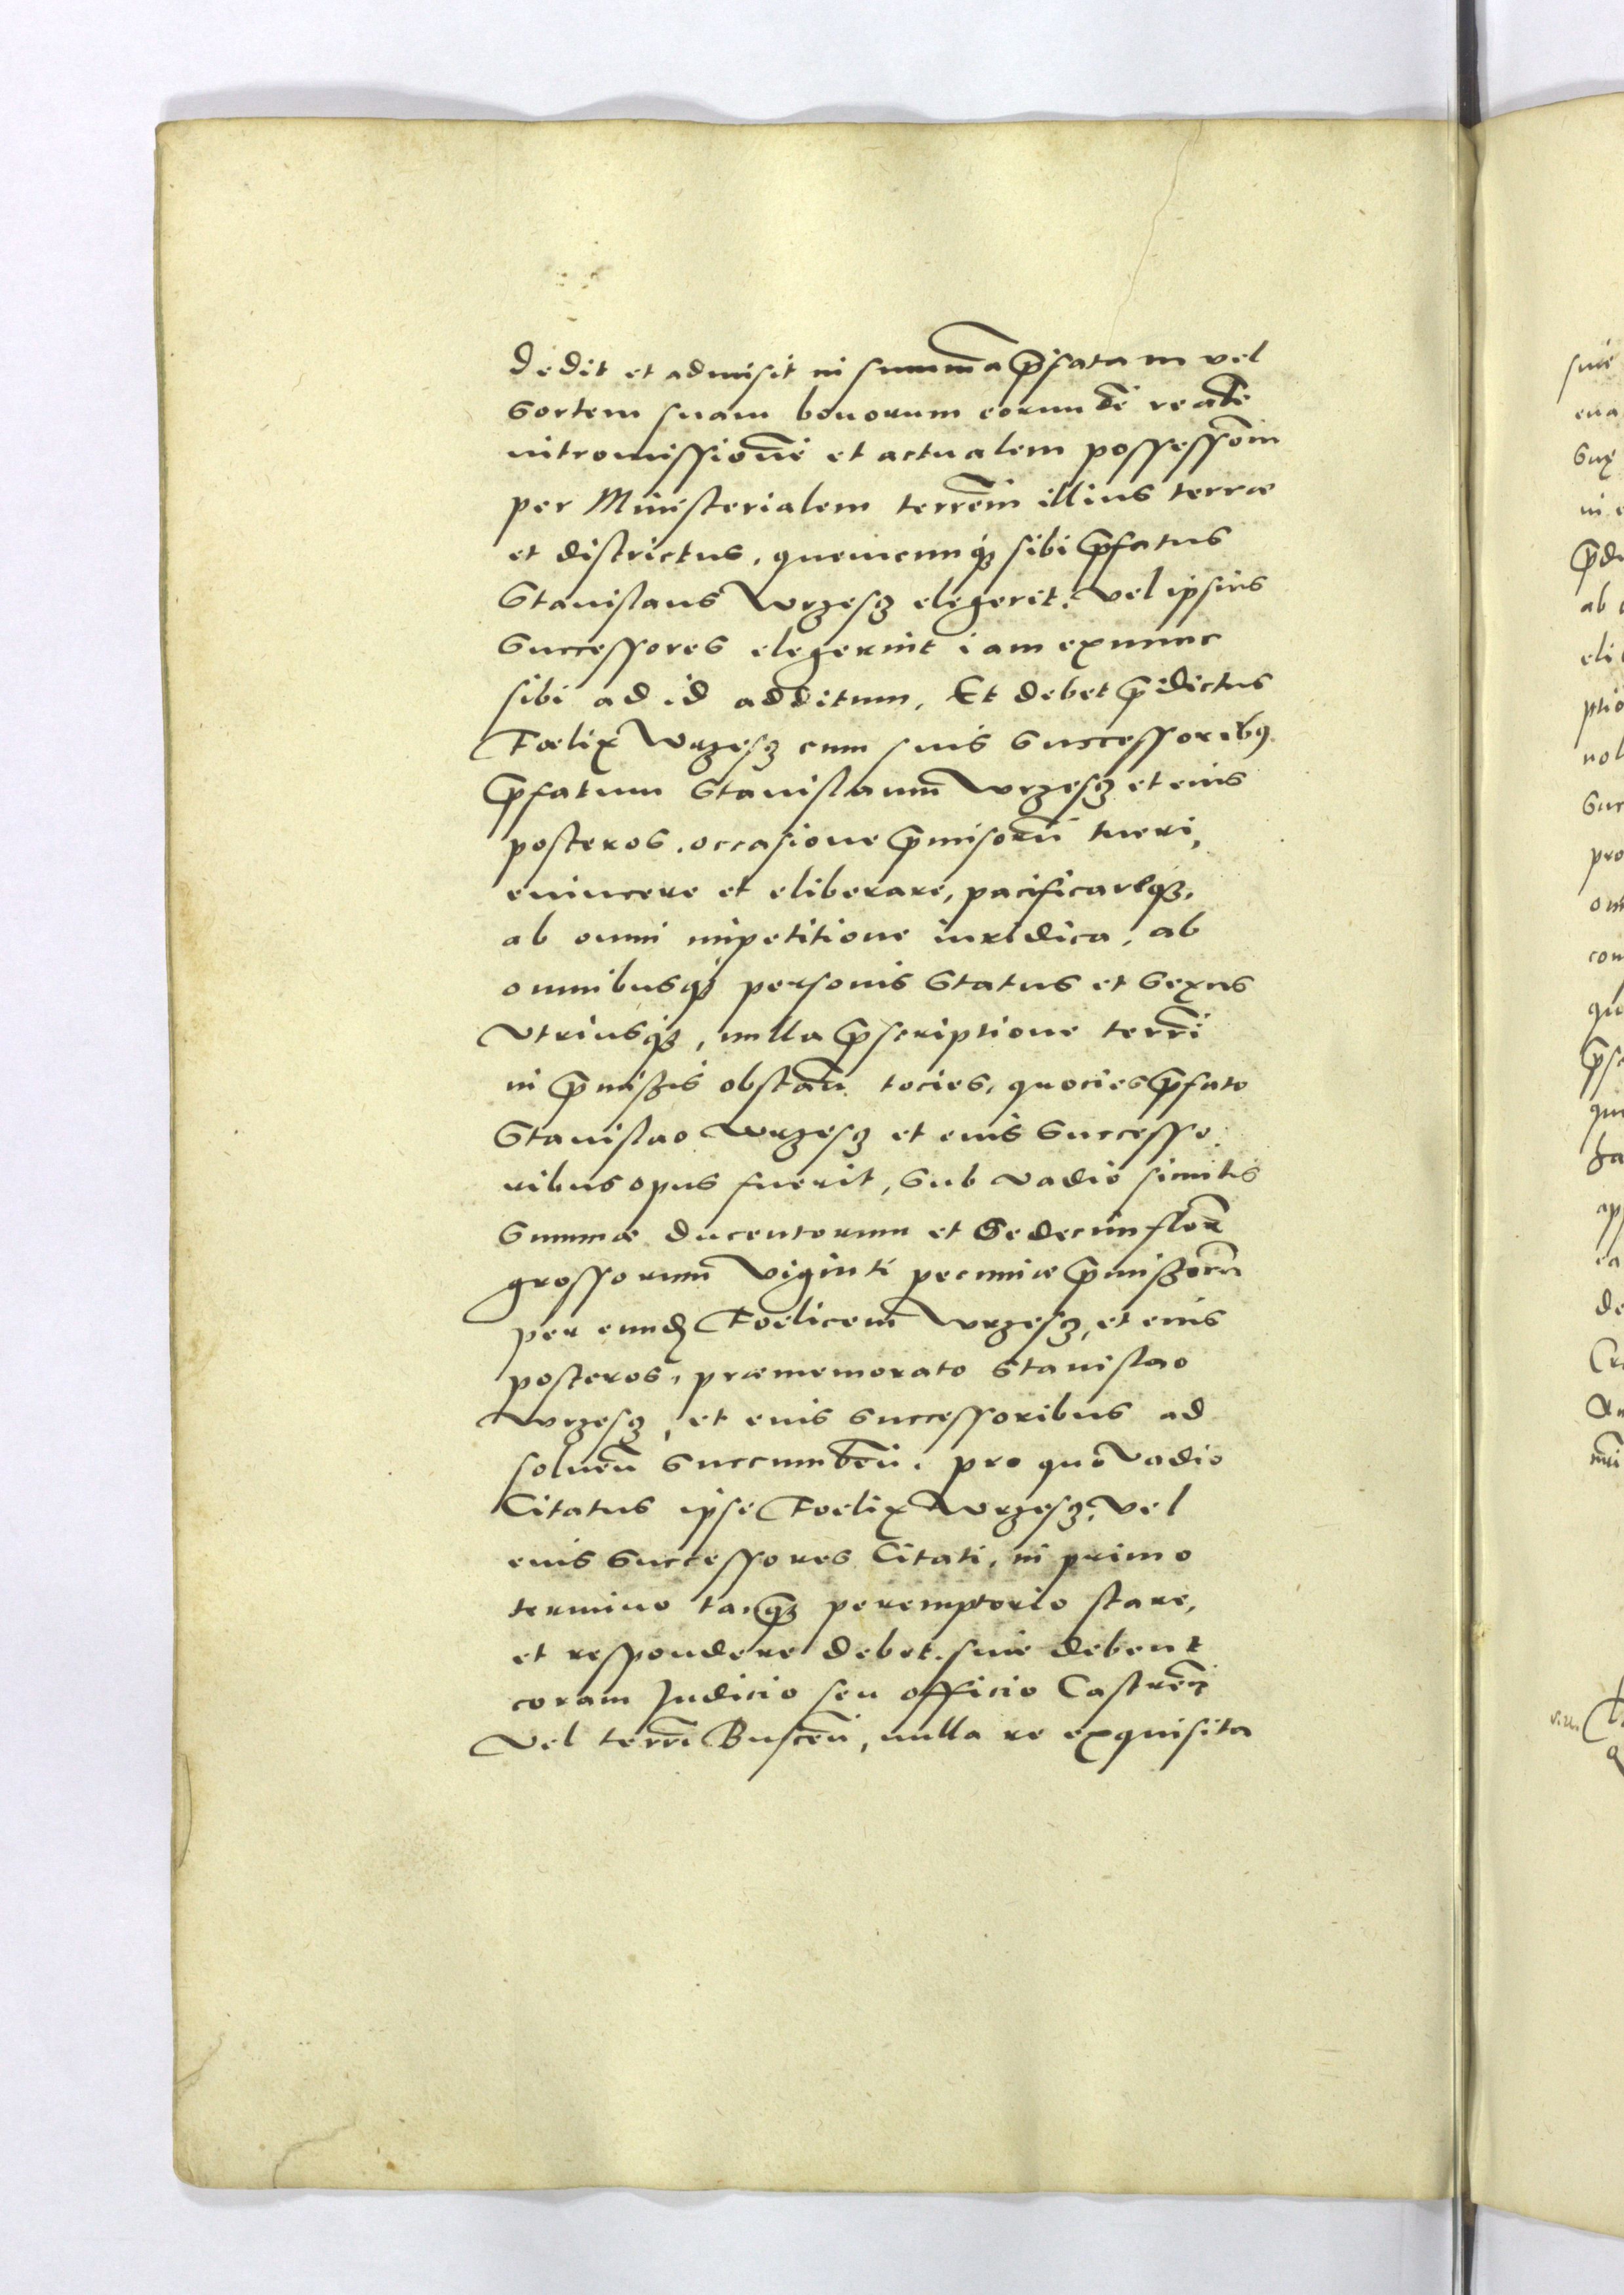 dedit et admisit in summa p̃fatam vel
sortem suam bonorum eorundẽ realẽ
intromissionẽ et actualem possessiõm
per Ministerialem terrẽm illius terræ
et districtus, quemcunq₃ sibi p̃fatus
Stanislaus Wrzesz elegerit, vel ipsius
Successores elegerint iam exnunc
sibi ad id additum. Et debet p̃dictus
Fœlix Wrzesz cum suis Successoribꝰ
p̃fatum Stanislaum Wrzesz et eius
posteros, occasione p̃misorũ tueri,
euincere et eliberare, pacificareq₃,
ab omni impetitione iuridica, ab
omnibusq₃ personis Status et Sexus
vtriusq₃, nulla p̃scriptione terrĩ
in p̃mißis obstañ. tocies, quocies p̃fato
Stanislao Wrzesz et eius Successo
ribus opus fuerit, sub vadio similis
Summæ ducentorum et Sedecim floř
grossorum viginti pecuniæ p̃mißorũ
per eund Fœlicem Wrzesz, et eius
posteros, præmemorato Stanislao
Wrzesz, et eius successoribus ad
solueñ succumbeñ. pro quo vadio
Citatus ipse Fœlix Wrzesz, vel
eius Successores Citati, in primo
termino tanq₃ peremptorio stare,
et respondere debet. siue debent
coram Judicio seu officio Castreñ
vel terrĩ Busceñ, nulla re exquisita